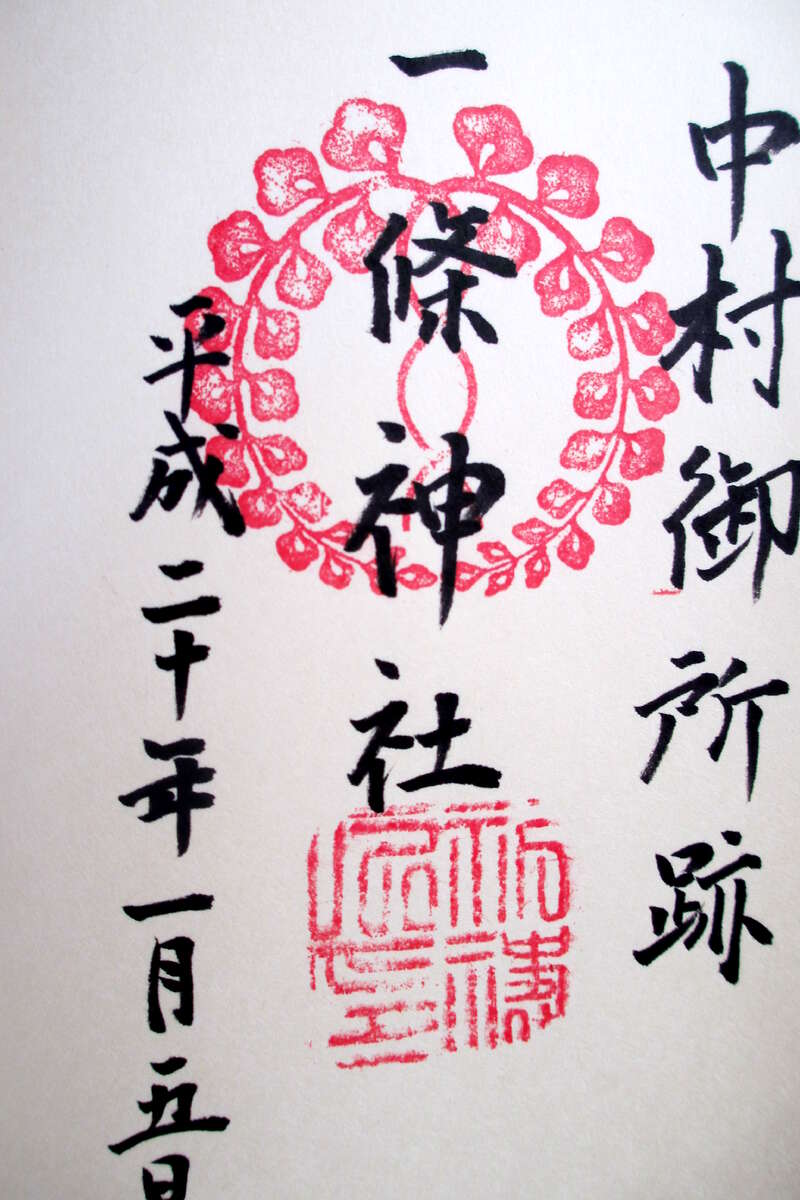 中村御所跡
一條神社
平成二十年一月五日